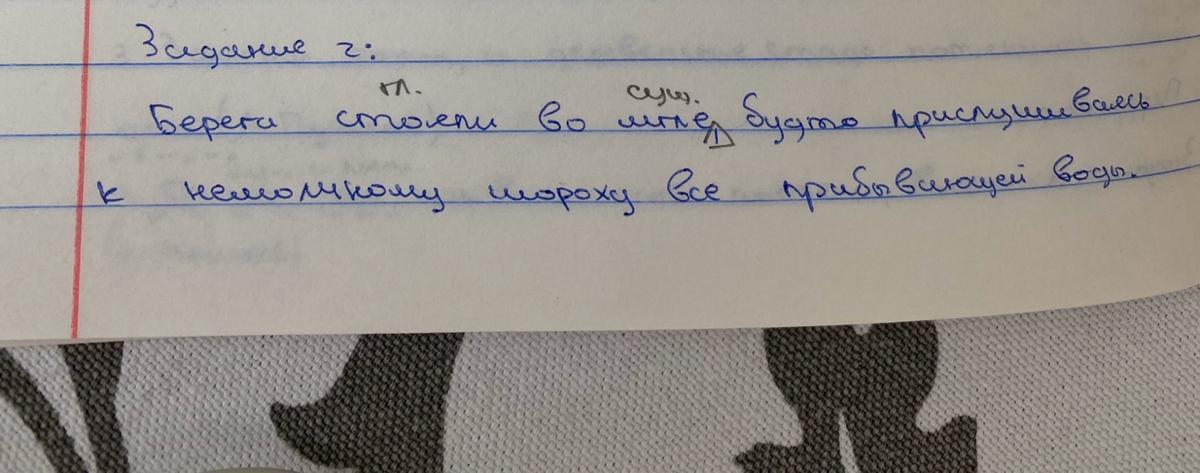 Задание 2:
гл. сущ.
Берега стояли во мгле, будто прислушиваясь
к немолчному шороху все прибывающей воды.